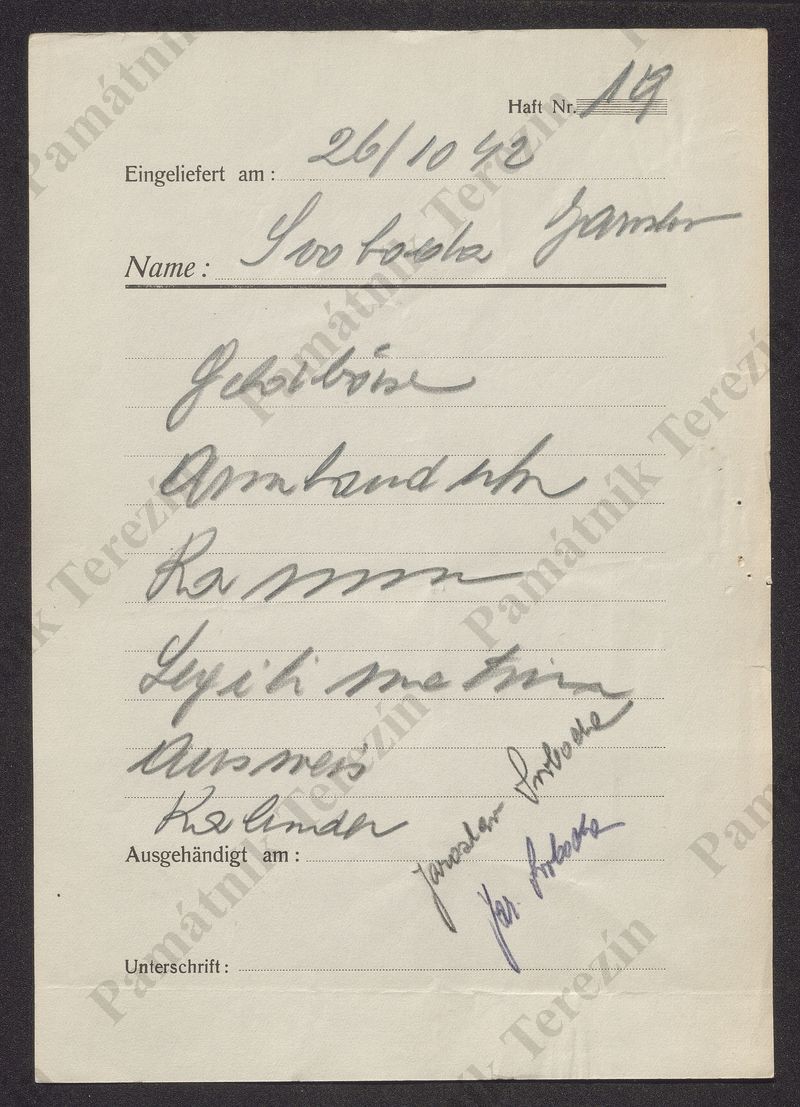 Haft Nr. 19
Eingeliefert am: 26/10 42
Name: Svoboda Jaroslav
Geldbörse
Armbanduhr
Kamm
Legitimation
Ausweis
Kalender
Jaroslav Svoboda
Jar. Svoboda
Ausgehändigt am:
Unterschrift:
Památník Terezín